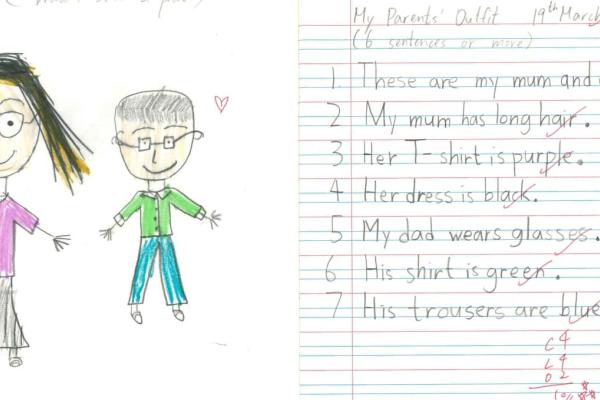 My Parents' Outfit 19th March
(6 sentences or more)
1. These are my mum and
2 My mum has long hair.
3 Her T-shirt is purple.
4 Her dress is black.
5 My dad wears glasses.
6 His shirt is green.
7 His trousers are blue
C 4
L 4
O 2